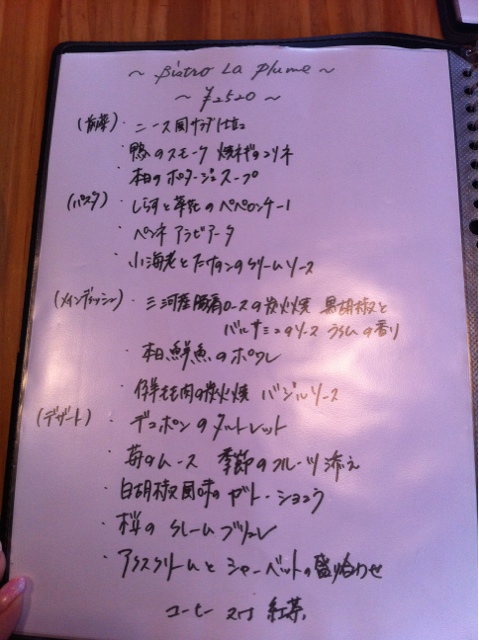 ～ Bistro La Plume ～
～ ¥2520 ～
(前菜)・ニース風サラダ仕立
・鴨のスモーク 焼ネギのマリネ
・本日のポタージュスープ
(パスタ)・しらすと菜花のペペロンチーノ
・ペンネ アラビアータ
・小海老とたけのこのクリームソース
(メインディッシュ)・三河産豚肩ロースの炭火焼 黒胡椒と
バルサミコのソース の香り
・本日鮮魚のポワレ
・仔羊モモ肉の炭火焼 バジルソース
(デザート)・デコポンのタルトレット
・苺のムース 季節のフルーツ添え
・白胡椒風味のガトーショコラ
・桜のクレームブリュレ
・アイスクリームとシャーベットの盛り合わせ
コーヒー 又は 紅茶